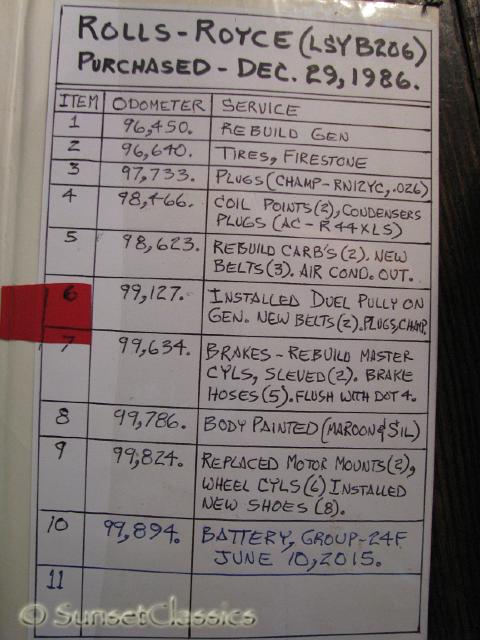 ROLLS-ROYCE (LSYB206)
PURCHASED - DEC. 29, 1986.
ITEM ODOMETER SERVICE
1 96,450. REBUILD GEN
2 96,640. TIRES, FIRESTONE
3 97,733. PLUGS (CHAMP-RN12YC, .026)
4 98,466. COIL POINTS(2), CONDENSERS
PLUGS (AC-R44XLS)
5 98,623. REBUILD CARB'S (2). NEW
BELTS (3). AIR COND. OUT.
6 99,127. INSTALLED DUEL PULLY ON
GEN. NEW BELTS (2). PLUGS, CHAMP.
7 99,634. BRAKES - REBUILD MASTER
CYLS, SLEVED (2). BRAKE
HOSES (5). FLUSH WITH DOT 4.
8 99,786. BODY PAINTED (MAROON & SIL)
9 99,824. REPLACED MOTOR MOUNTS (2),
WHEEL CYLS (6) INSTALLED
NEW SHOES (8).
10 99,894. BATTERY, GROUP-24F
JUNE 10, 2015.
11
© SunsetClassics